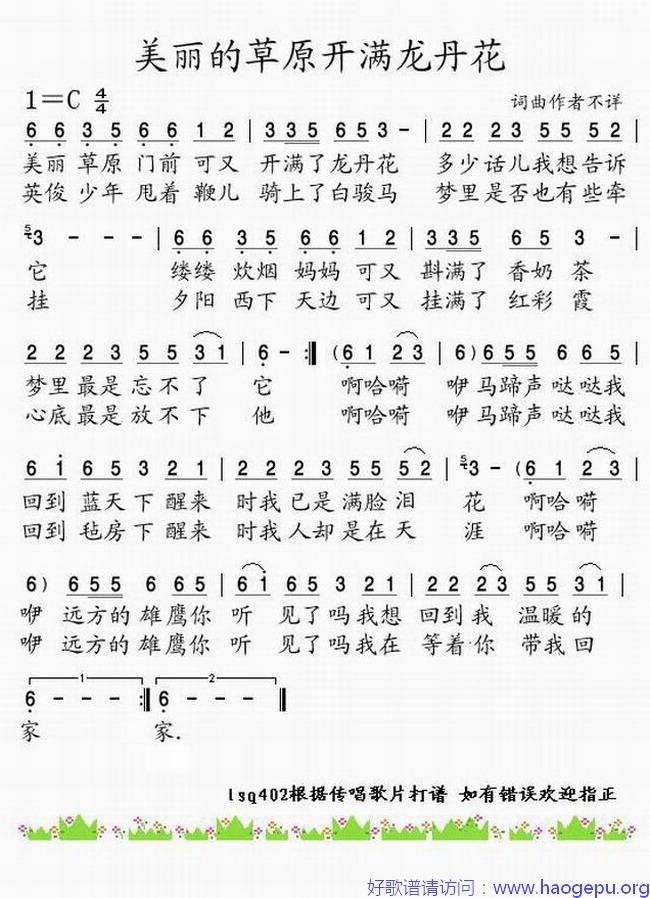 美丽的草原开满龙丹花
1=C 4/4
词曲作者不详
6 6 3 5 6 6 1 2 | 3 3 5 6 5 3 - | 2 2 2 3 5 5 5 2 |
美丽 草原 门前 可又 开满了龙丹花 多少话儿我想告诉
英俊 少年 甩着 鞭儿 骑上了白骏马 梦里是否也有些牵
5 3 - - - | 6 6 3 5 6 6 1 2 | 3 3 5 6 5 3 - |
它 缕缕 炊烟 妈妈 可又 斟满了 香奶 茶
挂 夕阳 西下 天边 可又 挂满了 红彩 霞
2 2 2 3 5 5 3 1 | 6 - :| (6 1 2 3 | 6) 6 5 5 6 6 5 |
梦里 最是 忘不 了 它 啊哈嗬 咿马蹄声 哒哒我
心底 最是 放不 下 他 啊哈嗬 咿马蹄声 哒哒我
6 1 6 5 3 2 1 | 2 2 2 3 5 5 5 2 | 5 3 - (6 1 2 3 |
回到 蓝天 下醒来 时我 已是 满脸 泪 花 啊哈嗬
回到 毡房 下醒来 时我 人却 是在 天 涯 啊哈嗬
6) 6 5 5 6 6 5 | 6 1 6 5 3 2 1 | 2 2 2 3 5 5 3 1 |
咿 远方的 雄鹰你 听 见了 吗我想 回到 我 温暖 的
咿 远方的 雄鹰你 听 见了 吗我在 等着 你 带我 回
1 2
6 - - - :| 6 - - - ‖
家 家.
lsq402根据传唱歌片打谱 如有错误欢迎指正
好歌谱请访问：www.haogepu.org